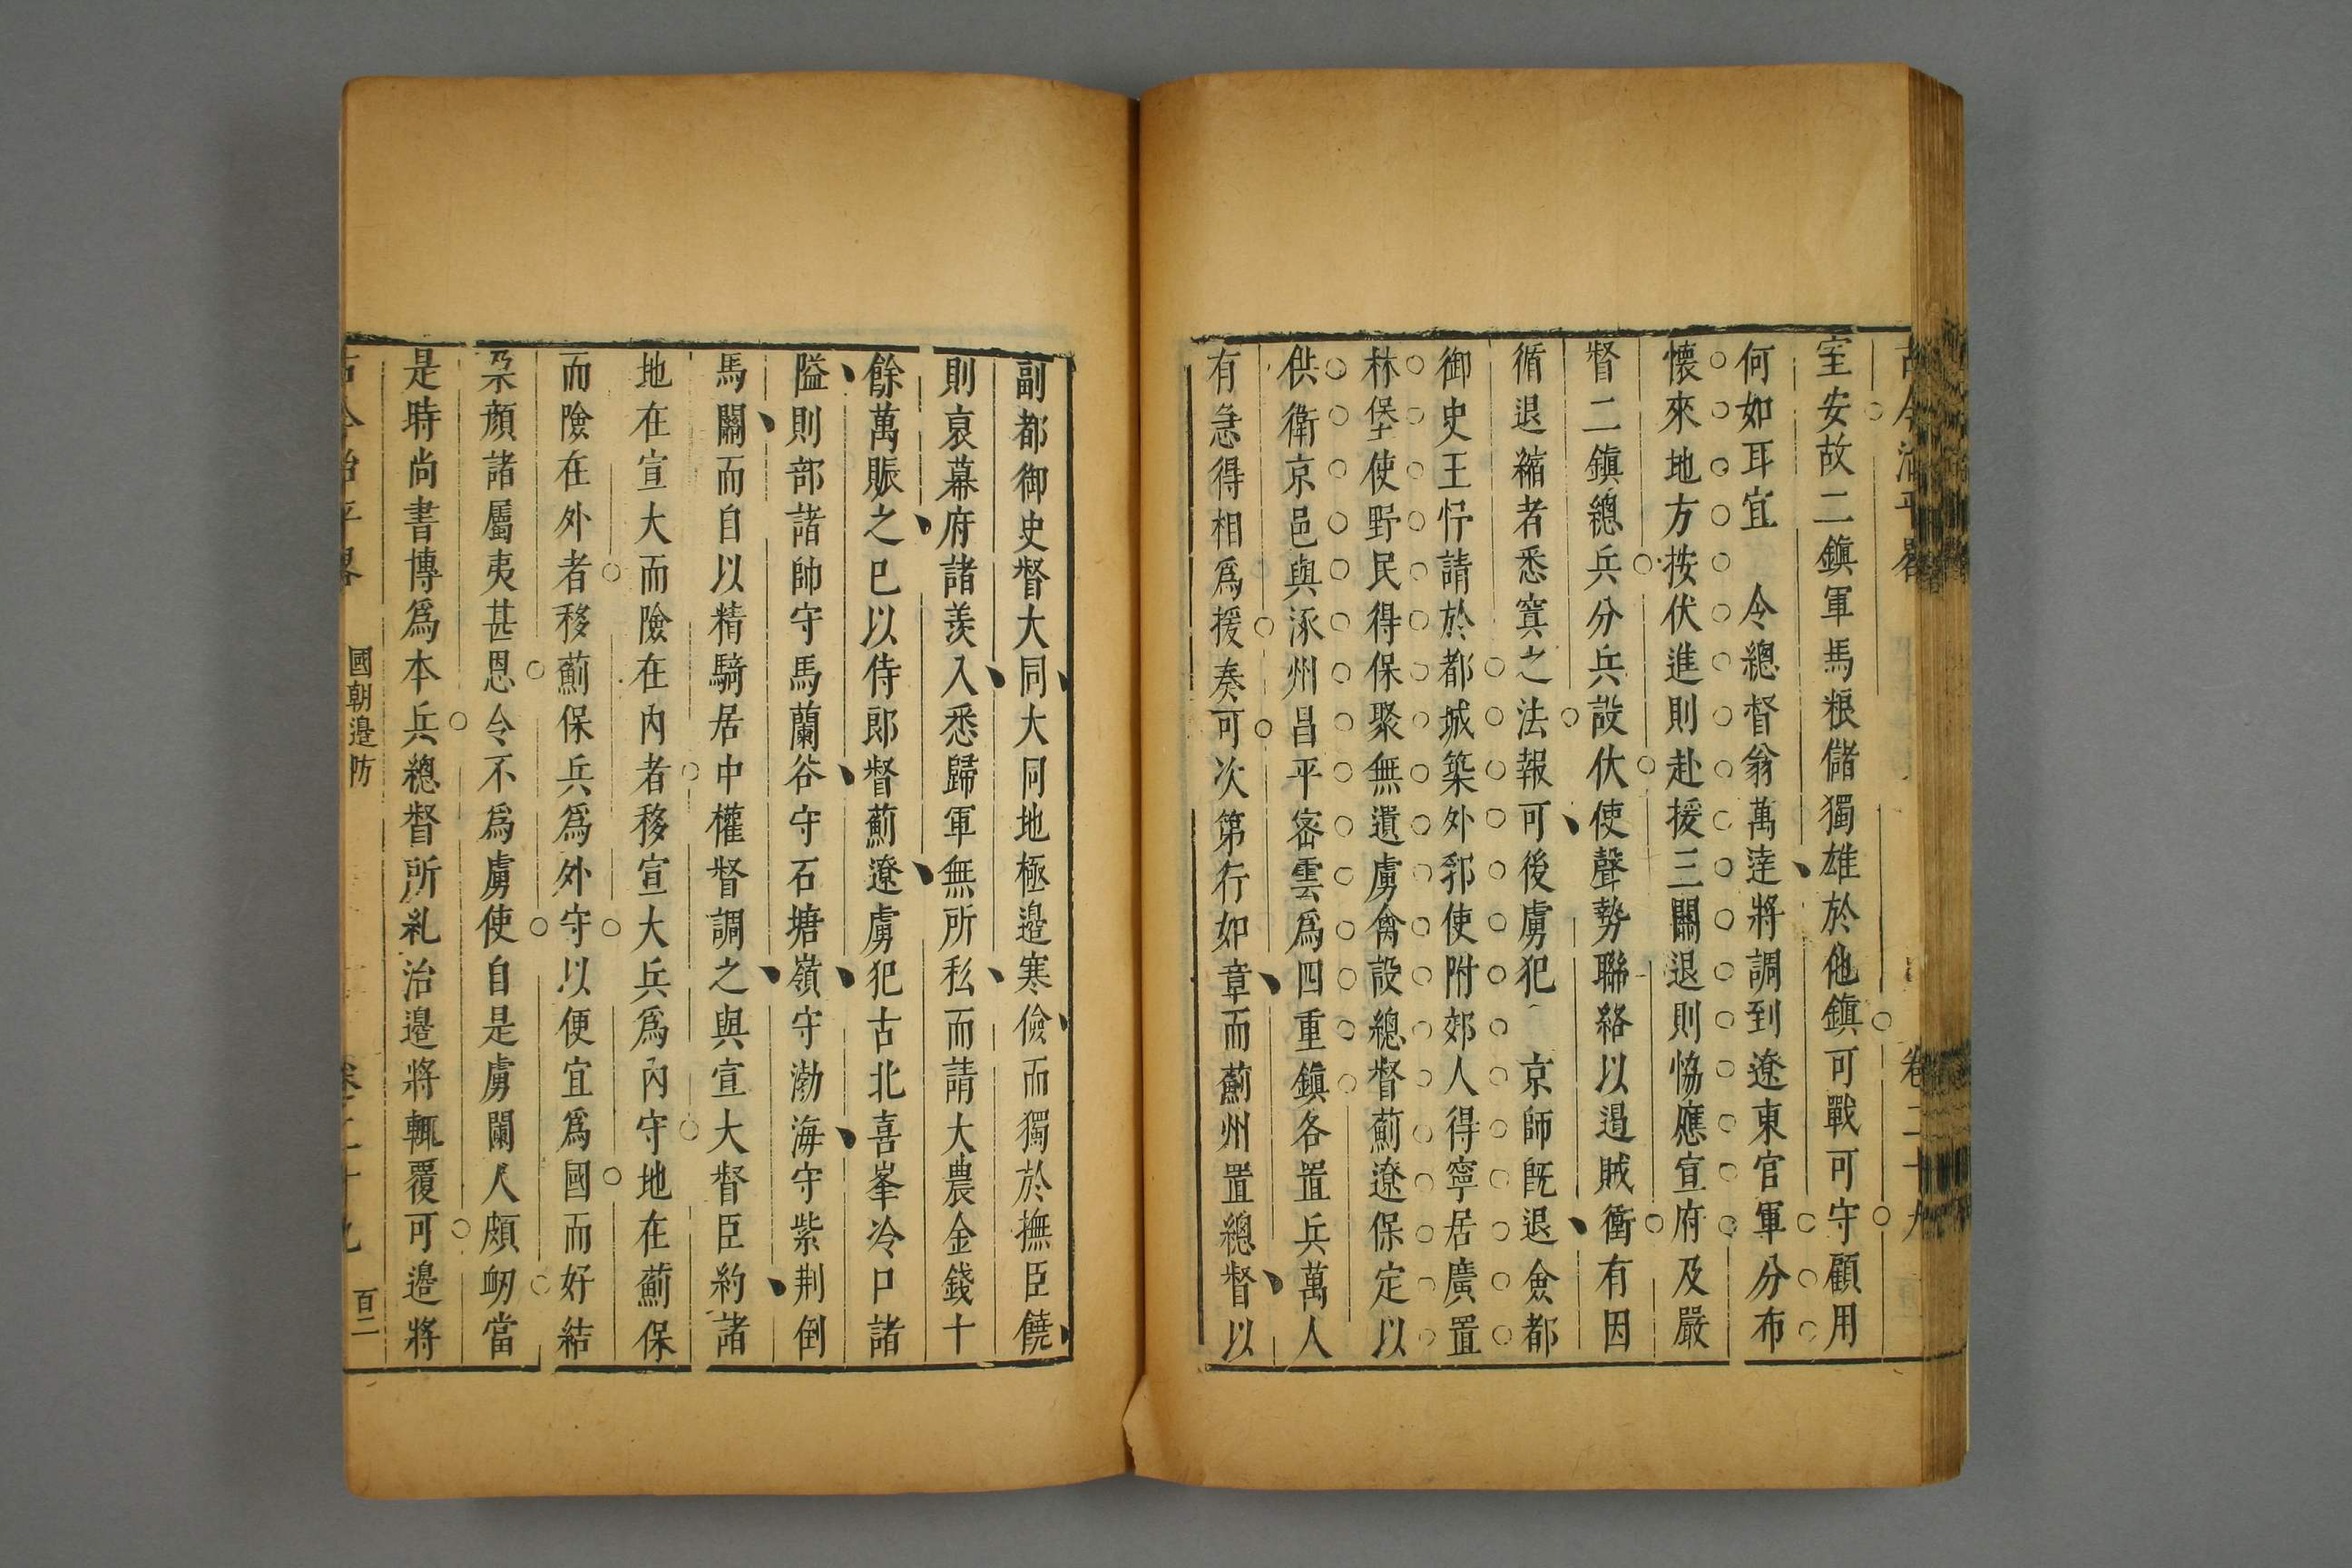 古今治平畧 卷二十九
室安故二鎮軍馬粮儲獨雄於他鎮可戰可守顧用
何如耳宜 令總督翁萬達將調到遼東官軍分布
懷來地方按伏進則赴援三關退則恊應宣府及嚴
督二鎮總兵分兵設伏使聲勢聯絡以遏賊衝有因
循退縮者悉寘之法報可後虜犯 京師既退僉都
御史王忬請於都城築外郛使附郊人得寧居廣置
林堡使野民得保聚無遺虜禽設總督薊遼保定以
供衛京邑與涿州昌平宻雲爲四重鎮各置兵萬人
有急得相爲援奏可次第行如章而薊州置總督以
副都御史督大同大同地極邉寒儉而獨於撫臣饒
則裒幕府諸羨入悉歸軍無所私而請大農金錢十
餘萬賑之已以侍郎督薊遼虜犯古北喜峯冷口諸
隘則部諸帥守馬蘭谷守石塘嶺守渤海守紫荆倒
馬關而自以精騎居中權督調之與宣大督臣約諸
地在宣大而險在内者移宣大兵爲内守地在薊保
而險在外者移薊保兵爲外守以便宜爲國而好結
朶顔諸屬夷甚恩令不爲虜使自是虜闌人頗衂當
是時尚書博爲本兵總督所札治邉將輒覆可邉將
古今治平畧 國朝邉防 卷二十九 百二